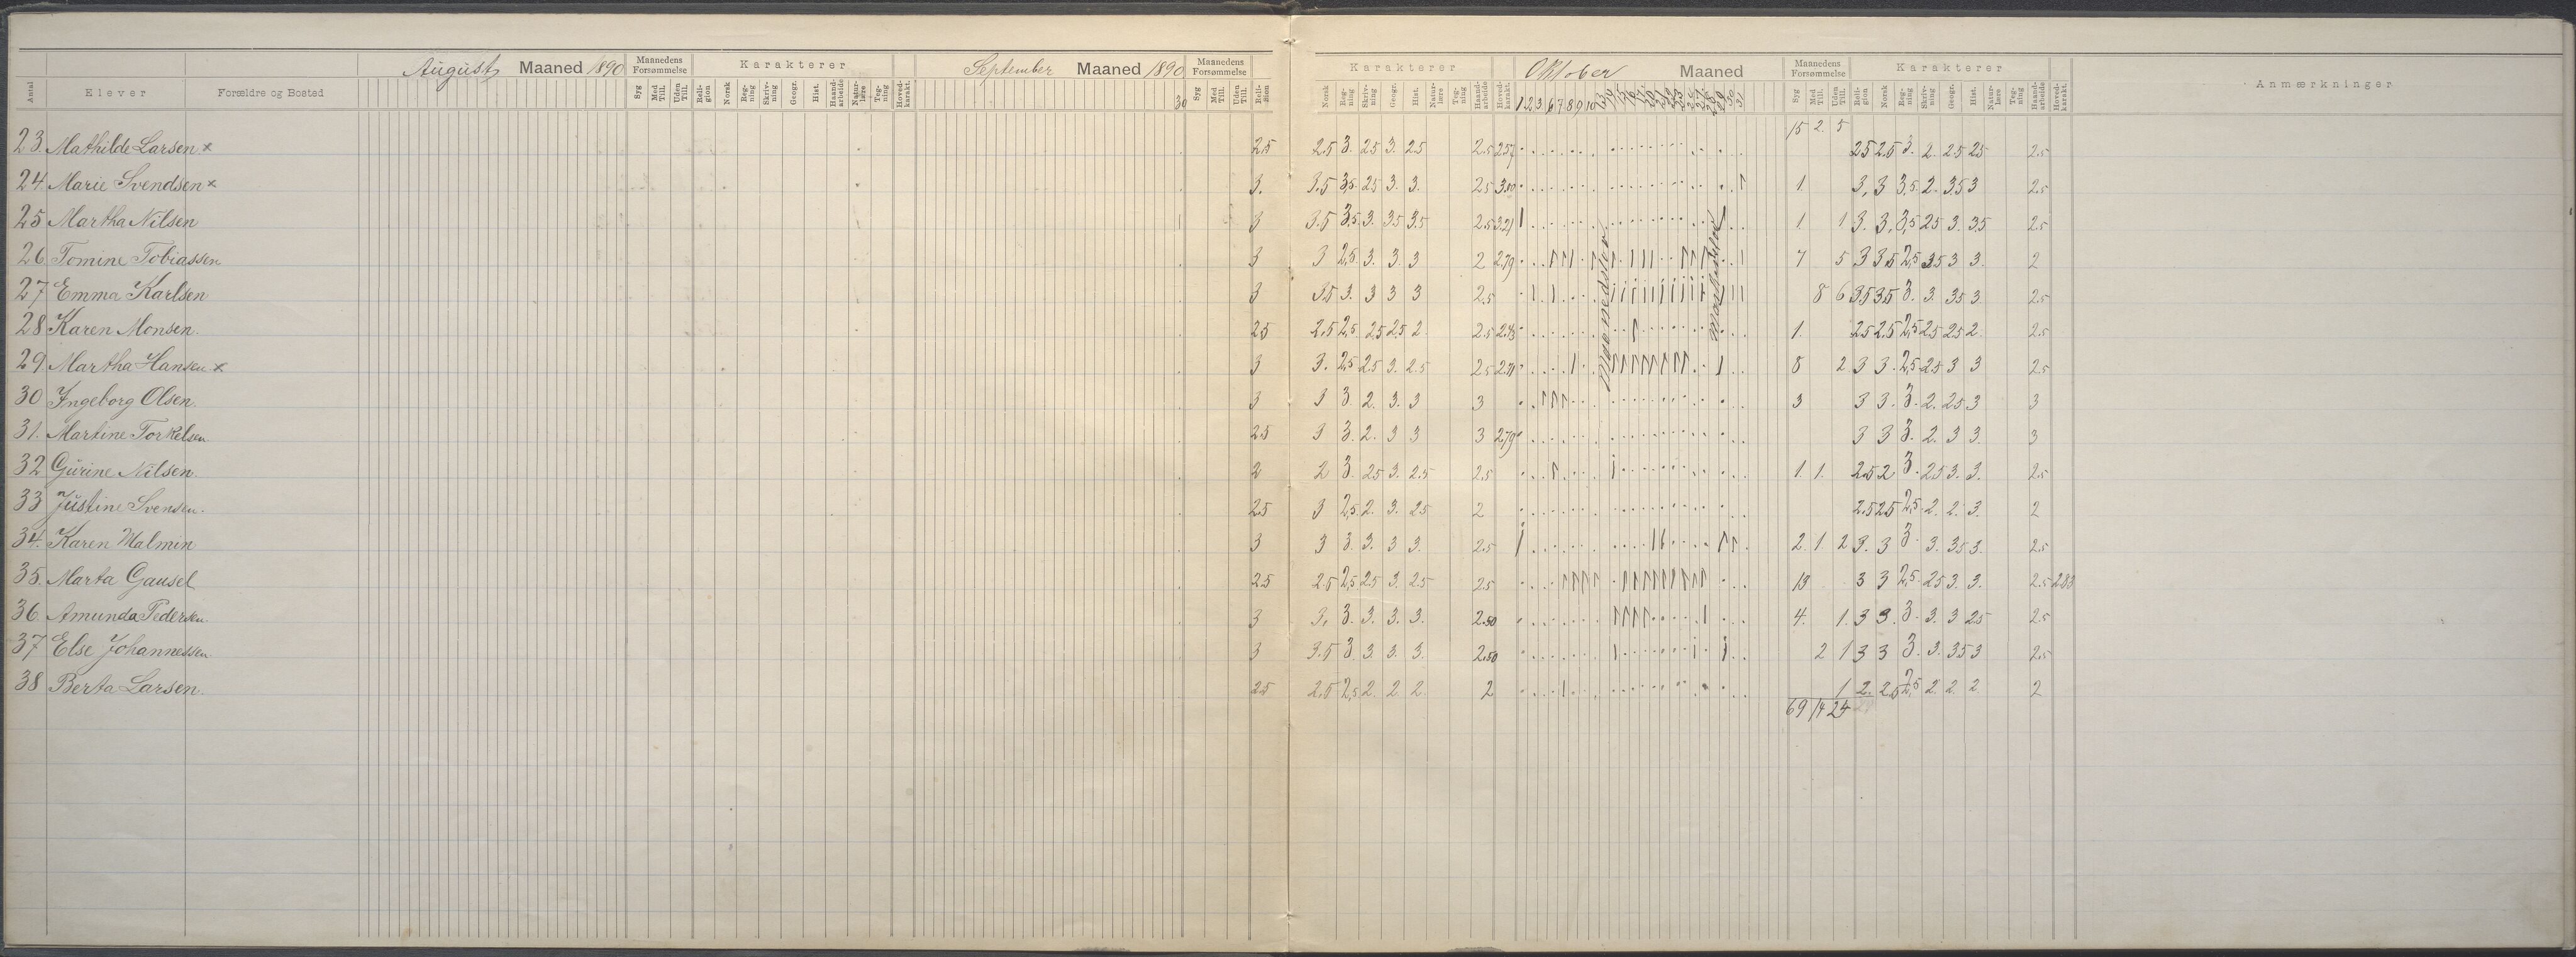 August Maaned 1890 Maanedens Forsømmelse Karakterer September Maaned 1890 Maanedens Forsømmelse Karakterer Oktober Maaned Maanedens Forsømmelse Karakterer
Antal Elever Forældre og Bosted Syg Med Till. Uden Till. Reli-gion Norsk Reg-ning Skriv-ning Geogr. Hist. Haand-arbeide Natur-lære Teg-ning Hoved-karakt. 30 Syg Med Till. Uden Till. Reli-gion Norsk Reg-ning Skriv-ning Geogr. Hist. Natur-lære Teg-ning Haand-arbeide Hoved-karakt. 1 2 3 6 7 8 9 10 30 31 Syg Med Till. Uden Till. Reli-gion Norsk Reg-ning Skriv-ning Geogr. Hist. Natur-lære Teg-ning Haand-arbeide Hoved-karakt. Anmærkninger
15 2. 5
23. Mathilde Larsen x 2.5 2.5 3. 25 3. 25 2.5 257 25 2.5 3. 2. 25 25 2.5
24. Marie Svendsen x 3. 3.5 3,5. 25 3. 3. 25 3.00 1. 3, 3 3,5. 2. 3.5 3 2.5
25 Martha Nilsen 3 3.5 3,5. 3. 35 3.5 2.5 3.21 1. 1 3. 3. 3,5 25 3. 3.5 2.5
26. Tomine Tobiassen 3 3 2,5. 3. 3. 3 2 2.79 7 5 3 3.5 2,5 35 3 3. 2
27 Emma Karlsen 3 3.5 3. 3 3 3 2.5 8 6 3.5 3.5 3. 3. 35 3. 2.5
28 Karen Monsen. 25 2.5 2,5. 25 2.5 2 2.5 2.43 1. 25 2.5 2,5 25 25 2 2.5
29 Martha Hansen x 3 3. 2,5 2.5 3. 2.5 25 2.71 8 2 3 3. 2,5 25 3 3 2.5
30 Ingeborg Olsen. 3 3 3 2. 3. 3 3 3 3 3. 3. 2. 25 3 3
31. Martine Torkelsen. 2.5 3 3. 2. 3 3 3 2.79 3 3 3. 2. 3 3. 3
32 Gurine Nilsen. 2 2 3. 25 3. 2.5 2.5 1. 1. 2.5 2 3. 25 3. 3. 2.5
33 Justine Svensen. 2.5 3 2,5. 2. 3. 25 2 2.5 25 2,5. 2. 2. 3. 2
34. Karen Malmin 3 3 3. 3. 3 3. 2.5 2. 1. 2 3. 3 3. 3. 35 3. 2.5
35. Marta Gausel 2.5 2.5 2,5 25 3. 25 25 13 3 3 2,5. 25 3. 3. 2.5 283
36. Amunda Pedersen. 3 3, 3. 3. 3. 3. 2.50 4. 1. 3 3. 3. 3. 3 25 2.5
37 Else Johannessen 3 3.5 3 3. 3. 3. 2.50 2 1 3 3 3. 3. 35 3 2.5
38 Berta Larsen. 2.5 2.5 2,5 2. 2 2. 2 1 2. 2.5 2,5 2. 2. 2 2
69 14 24
Maanedslov